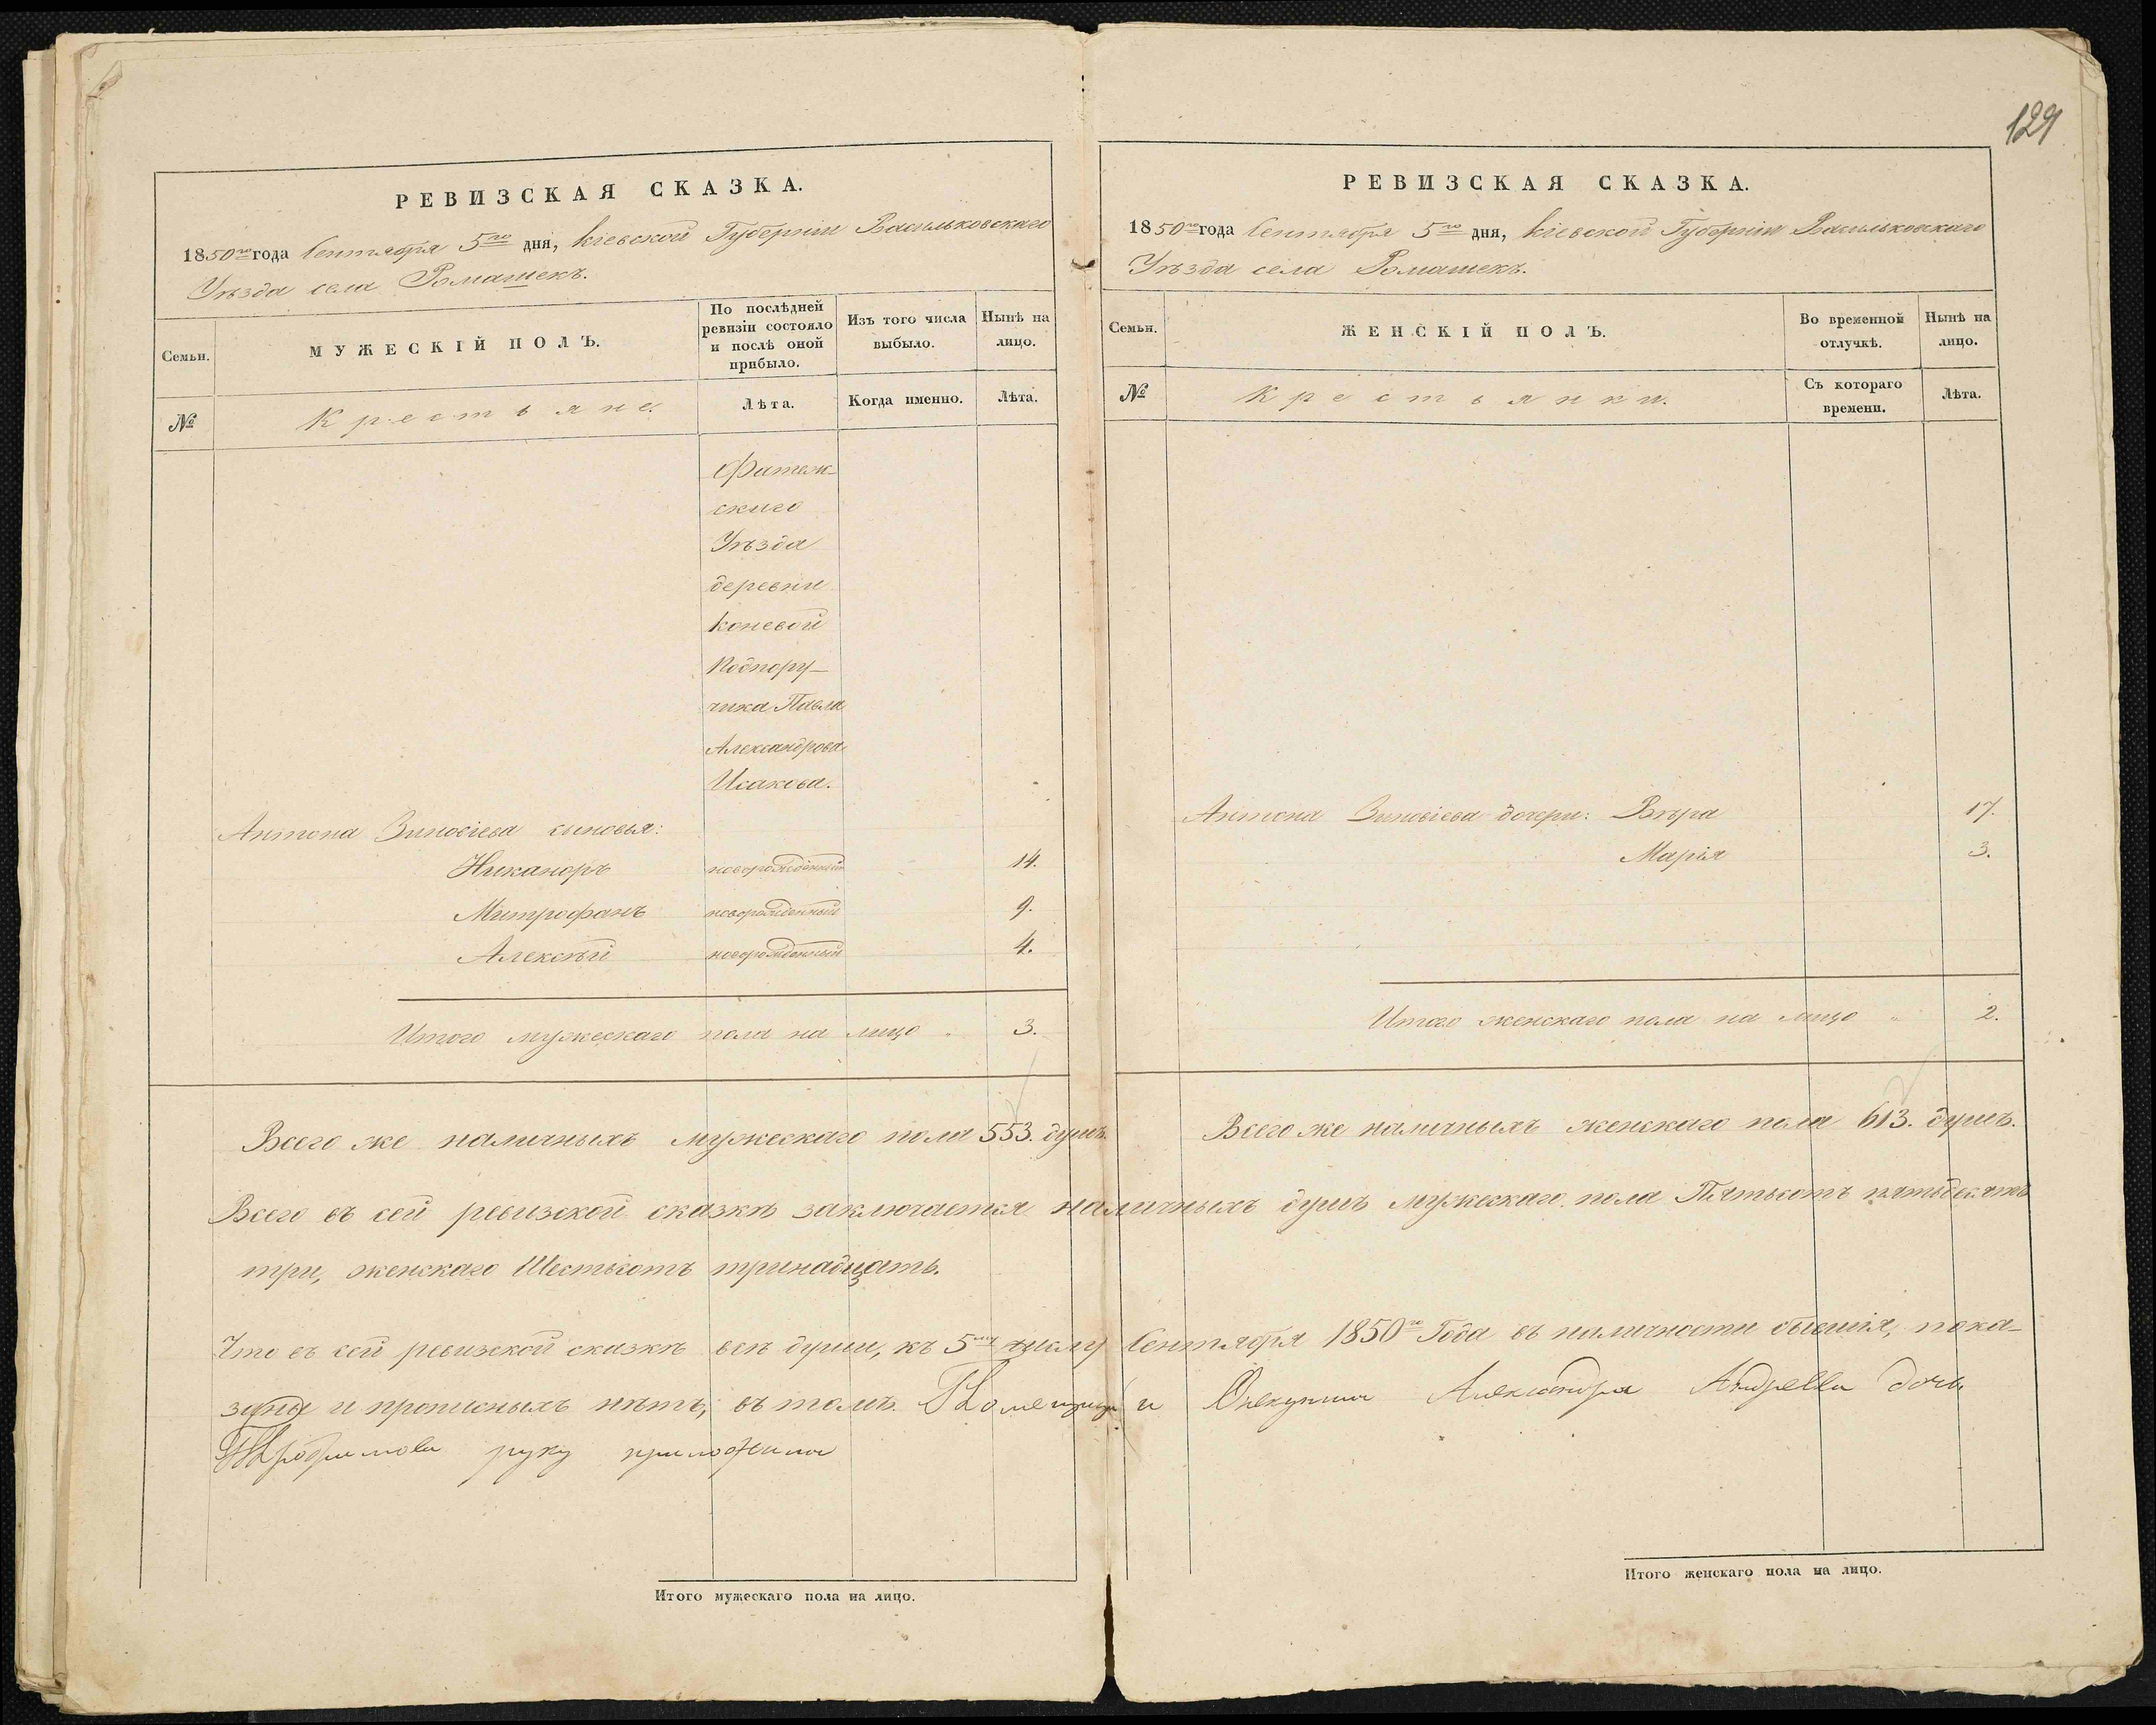 129
РЕВИЗСКАЯ СКАЗКА.
1850го года Сентября 5го дня, Кіевской Губерніи Васильковскаго
Уѣзда села Ромашекъ.
Семьи.
МУЖЕСКІЙ ПОЛЪ.
По послѣдней ревизіи состояло и послѣ оной прибыло.
Изъ того числа выбыло.
Нынѣ на лицо.
№
Крестьяне.
Лѣта.
Когда именно.
Лѣта.
Фатеж-
скаго
Уѣзда
деревни
Коневой
Подпору-
чика Павла
Александрова
Исакова.
Антона Зиновіева сыновья:
Никаноръ новорожденный 14.
Митрофанъ новорожденный 9.
Алексѣй новорожденный 4.
Итого мужескаго пола на лицо 3.
Всего же наличныхъ мужескаго пола 553. душъ.
РЕВИЗСКАЯ СКАЗКА.
1850го года Сентября 5го дня, Кіевской Губерніи Васильковскаго
Уѣзда села Ромашекъ.
Семьи.
ЖЕНСКІЙ ПОЛЪ.
Во временной отлучкѣ.
Нынѣ на лицо.
№
Крестьянки.
Съ котораго времени.
Лѣта.
Антона Зиновіева дочери: Вѣра 17.
Марія 3.
Итого женскаго пола на лицо " 2.
Всего же наличныхъ женскаго пола 613. душъ.
Всего въ сей ревизской сказкѣ заключается наличныхъ душъ мужескаго пола Пятьсотъ пятьдесятъ
три, женскаго Шестьсотъ тринадцать.
Что въ сей ревизской сказкѣ всѣ души, къ 5му числу Сентября 1850го Года въ наличности бывшія, пока-
заны и прописныхъ нѣтъ, въ томъ Помещица и Опекунша Александра Андреева дочь
руку приложила
Итого мужескаго пола на лицо.
Итого женскаго пола на лицо.